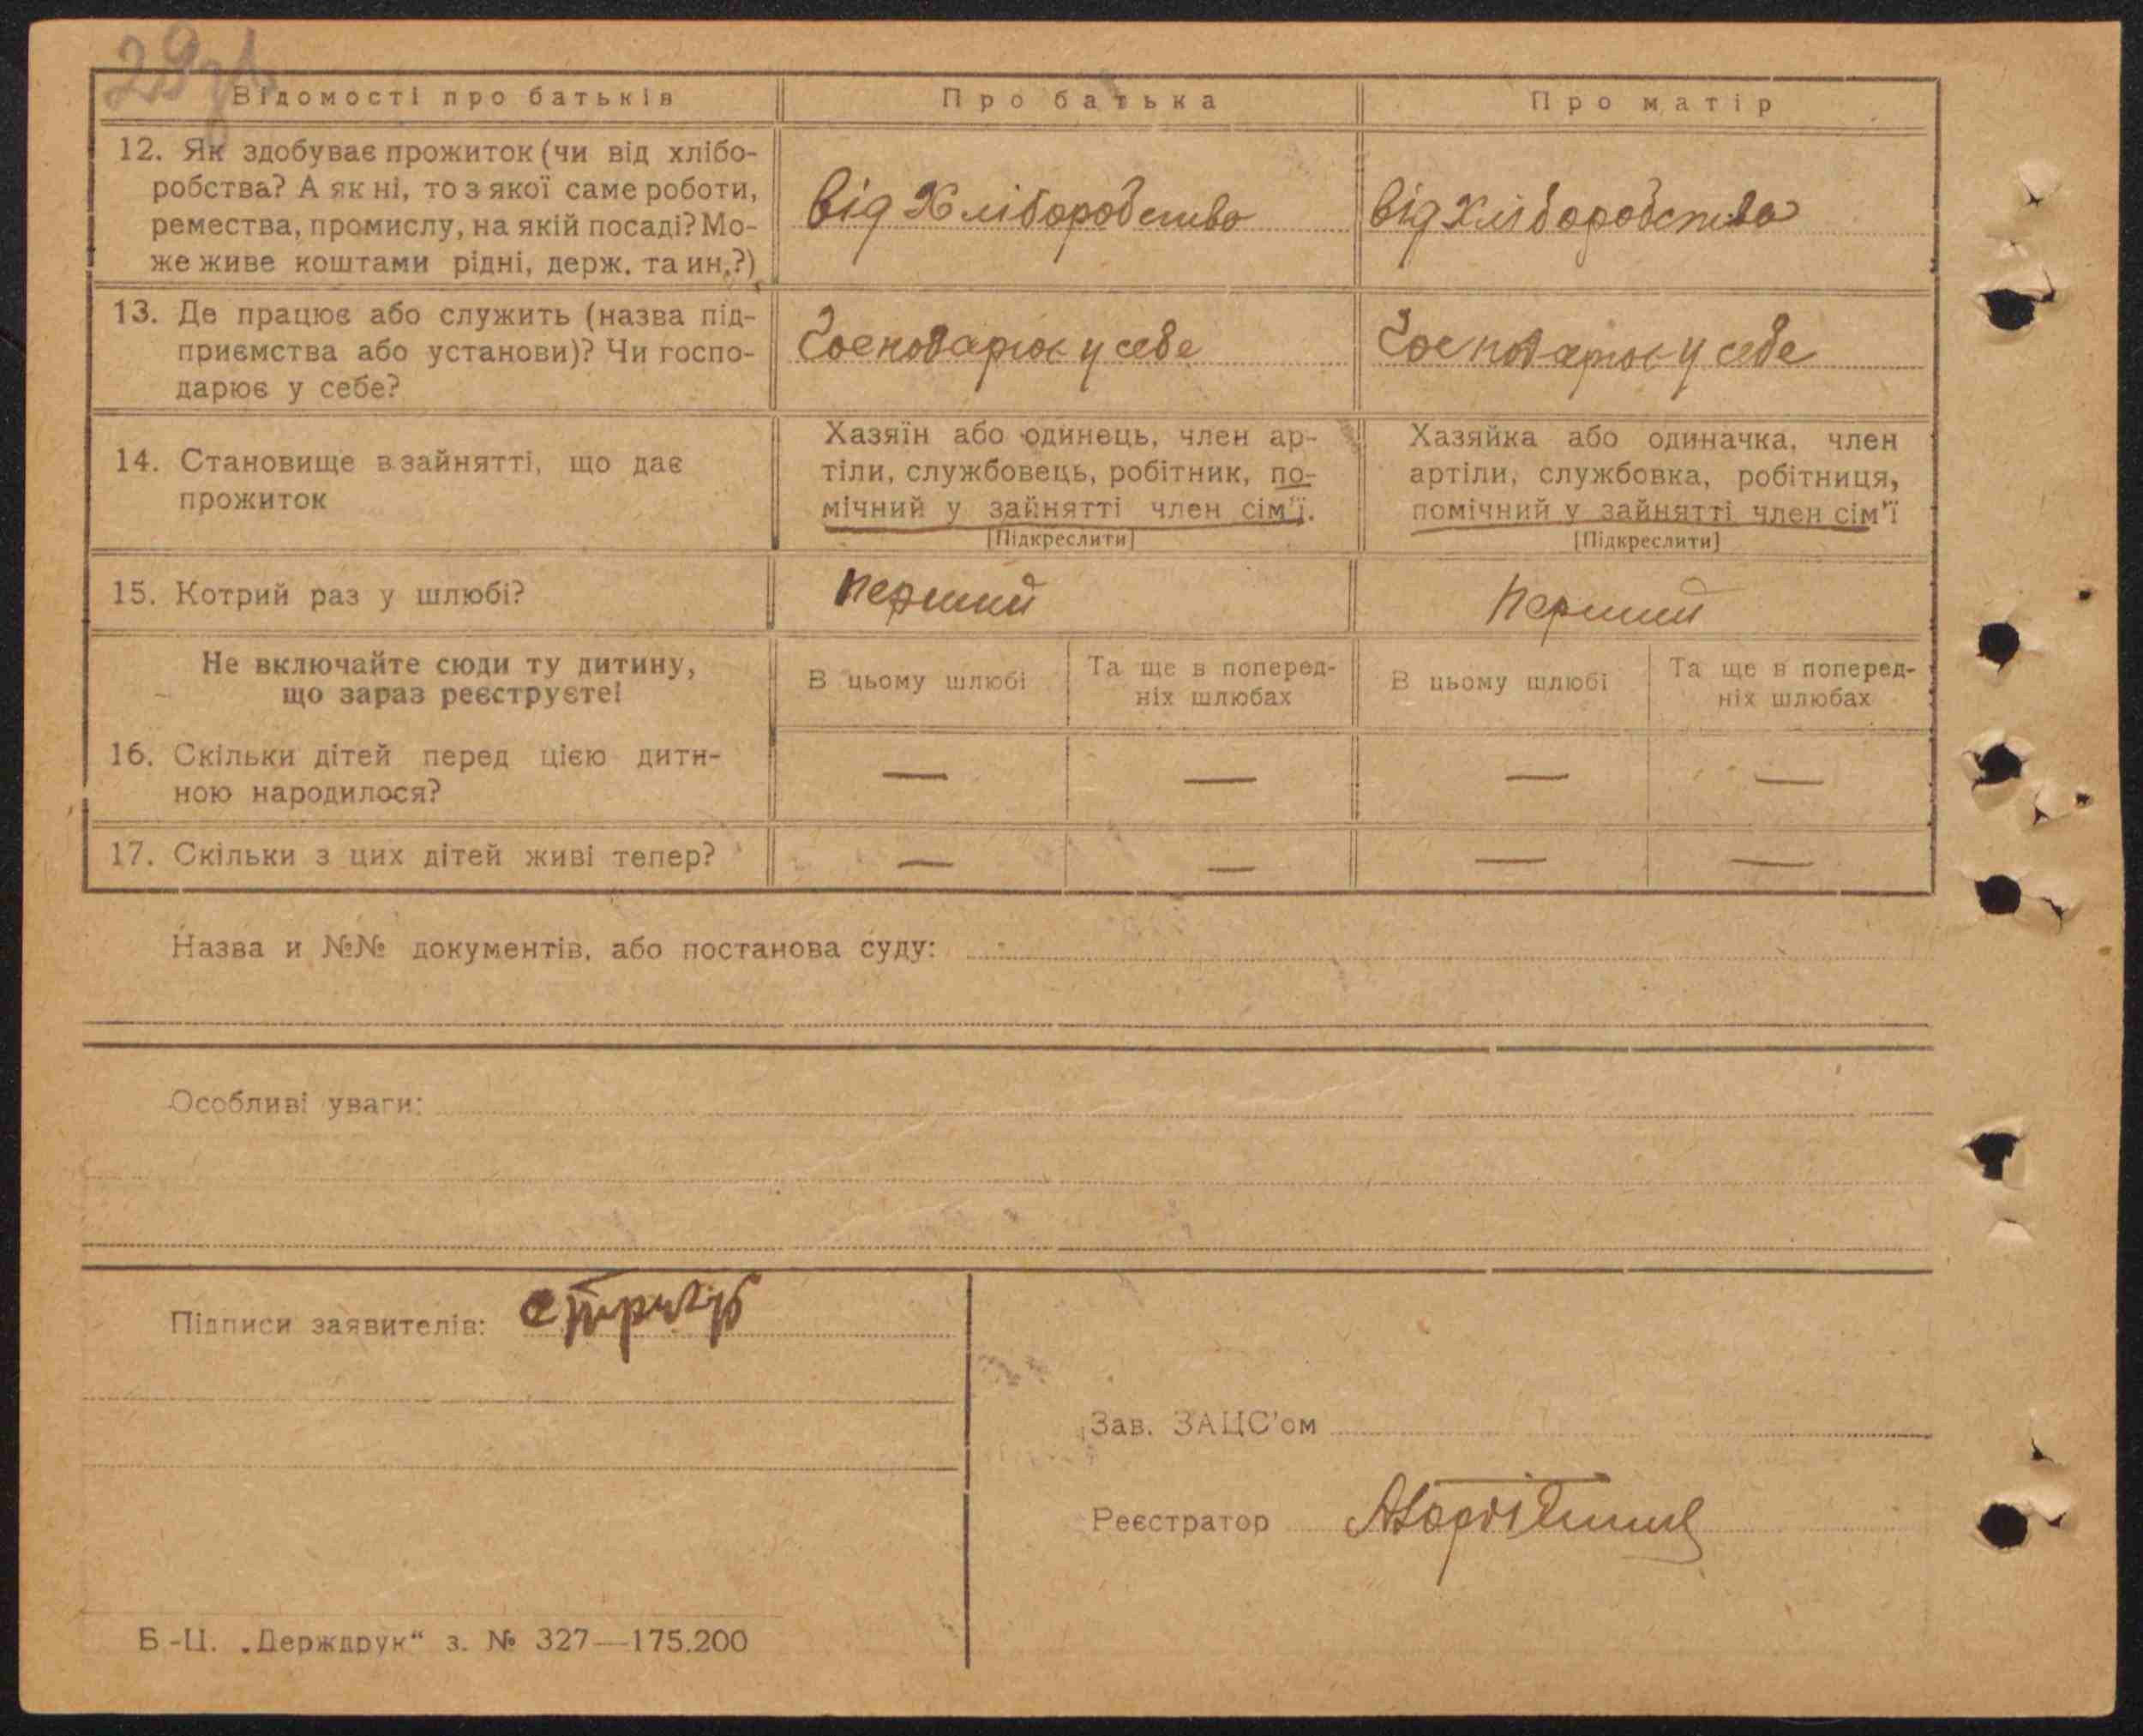 29зв
Відомості про батьків
Про батька
Про матір
12. Як здобуває прожиток (чи від хлібо-
робства? А як ні, то з якої саме роботи,
ремества, промислу, на якій посаді? Мо-
же живе коштами рідні, держ. та ин.?)
від Хліборобство
від Хліборобства
13. Де працює або служить (назва під-
приємства або установи)? Чи госпо-
дарює у себе?
Господарює у себе
Господарює у себе
14. Становище в зайнятті, що дає
прожиток
Хазяїн або одинець, член ар-
тіли, службовець, робітник, по-
мічний у зайнятті член сім'ї.
[Підкреслити]
Хазяйка або одиначка, член
артіли, службовка, робітниця,
помічний у зайнятті член сім'ї
[Підкреслити]
15. Котрий раз у шлюбі?
перший
перший
Не включайте сюди ту дитину,
що зараз реєструєте!
В цьому шлюбі
Та ще в поперед-
ніх шлюбах
В цьому шлюбі
Та ще в поперед-
ніх шлюбах
16. Скільки дітей перед цією дити-
ною народилося?
— — — —
17. Скільки з цих дітей живі тепер?
— — — —
Назва и №№ документів, або постанова суду:
Особливі уваги:
Підписи заявителів:
Зав. ЗАЦС'ом
Реєстратор
Б.-Ц. „Держдрук“ з. № 327—175.200